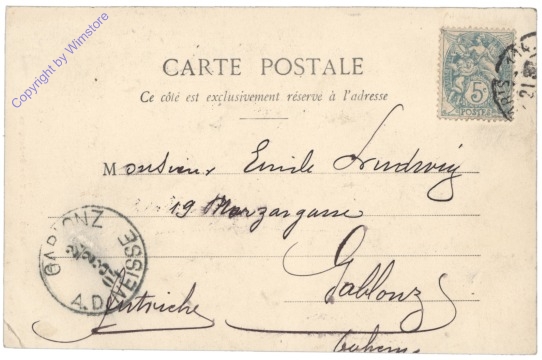 Copyright by Wimstore
5c
POSTES
CARTE POSTALE
Ce côté est exclusivement réservé à l'adresse
Monsieur Emile Ludwig
19
Gablonz
Autriche
GABLONZ
A.D. NEISSE